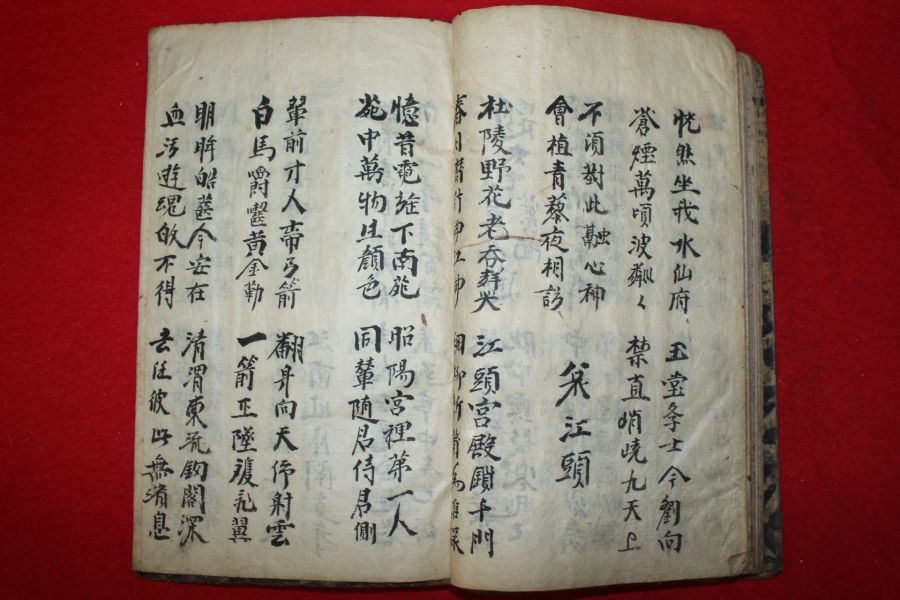 恍然坐我水仙府
蒼煙萬頃波粼々
玉堂斈士今劉向
禁直峭嶢九天上
不須對此融心神
會植青藜夜相訪
哀江頭
杜陵野花老吞聲哭
江頭宮殿鎖千門
憶昔霓旌下南苑
苑中萬物生顏色
昭陽宮裡第一人
同輦随君侍君側
輦前才人帶弓箭
白馬嚼齧黃金勒
翻身向天仰射雲
一箭正墜雙飛翼
明眸皓齒今安在
血污遊魂歸不得
清渭東流釼閣深
去住彼此無消息